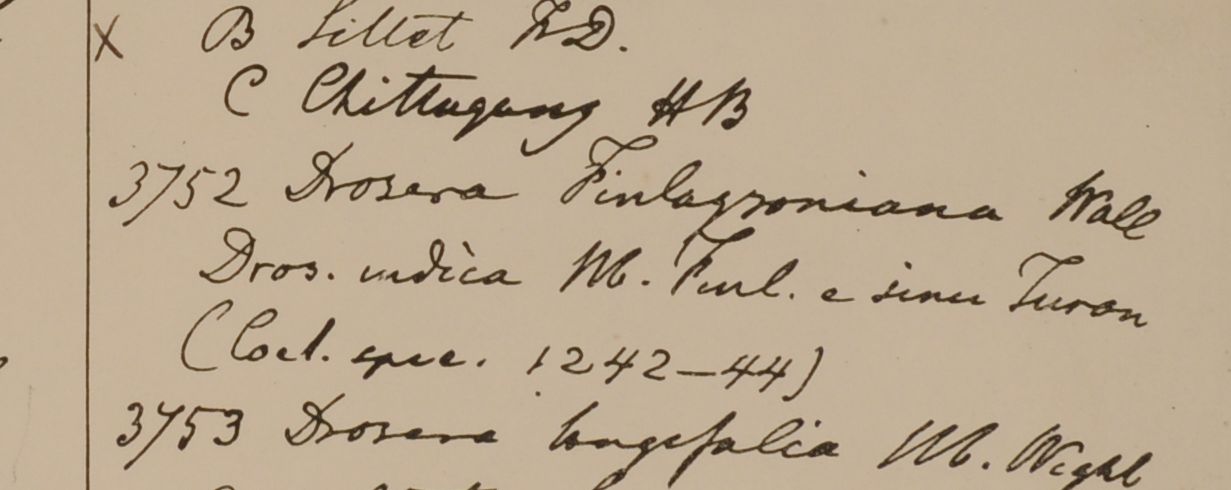 X B Sillet F.D.
C Chittagong HB
3752 Drosera Finlaysoniana Wall
Dros. indica Hb. Finl. e sinu Turon
(Coch. spec. 1242-44)
3753 Drosera longifolia Hb. Wight